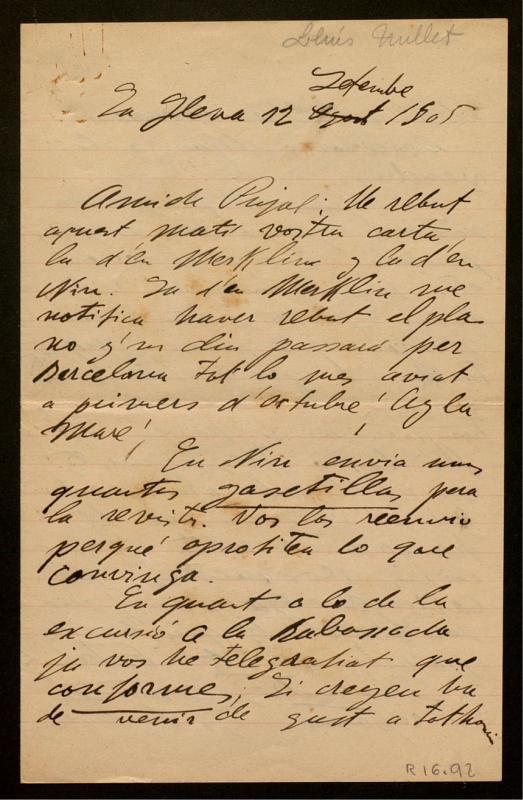 Lluís Millet
Setembre
La Gleva 12 Agost 1905
Amich Pujol: He rebut
aquest matí vostra carta,
la d'en Merklin y la d'en
Nin. La d'en Merklin me
notifica haver rebut el pla
no y'm diu passará per
Barcelona tot lo mes aviat
a primers d'octubre! Ay la
Mare!
En Nin envia unas
quantas gasetillas pera
la revista. Vos las reenvio
perqué aprofiteu lo que
convinga.
En quant a lo de la
excursió a la Rabassada
ja vos he telegrafiat que
conformes, Si creyeu ha
de venir de gust a tothom
R 16.92